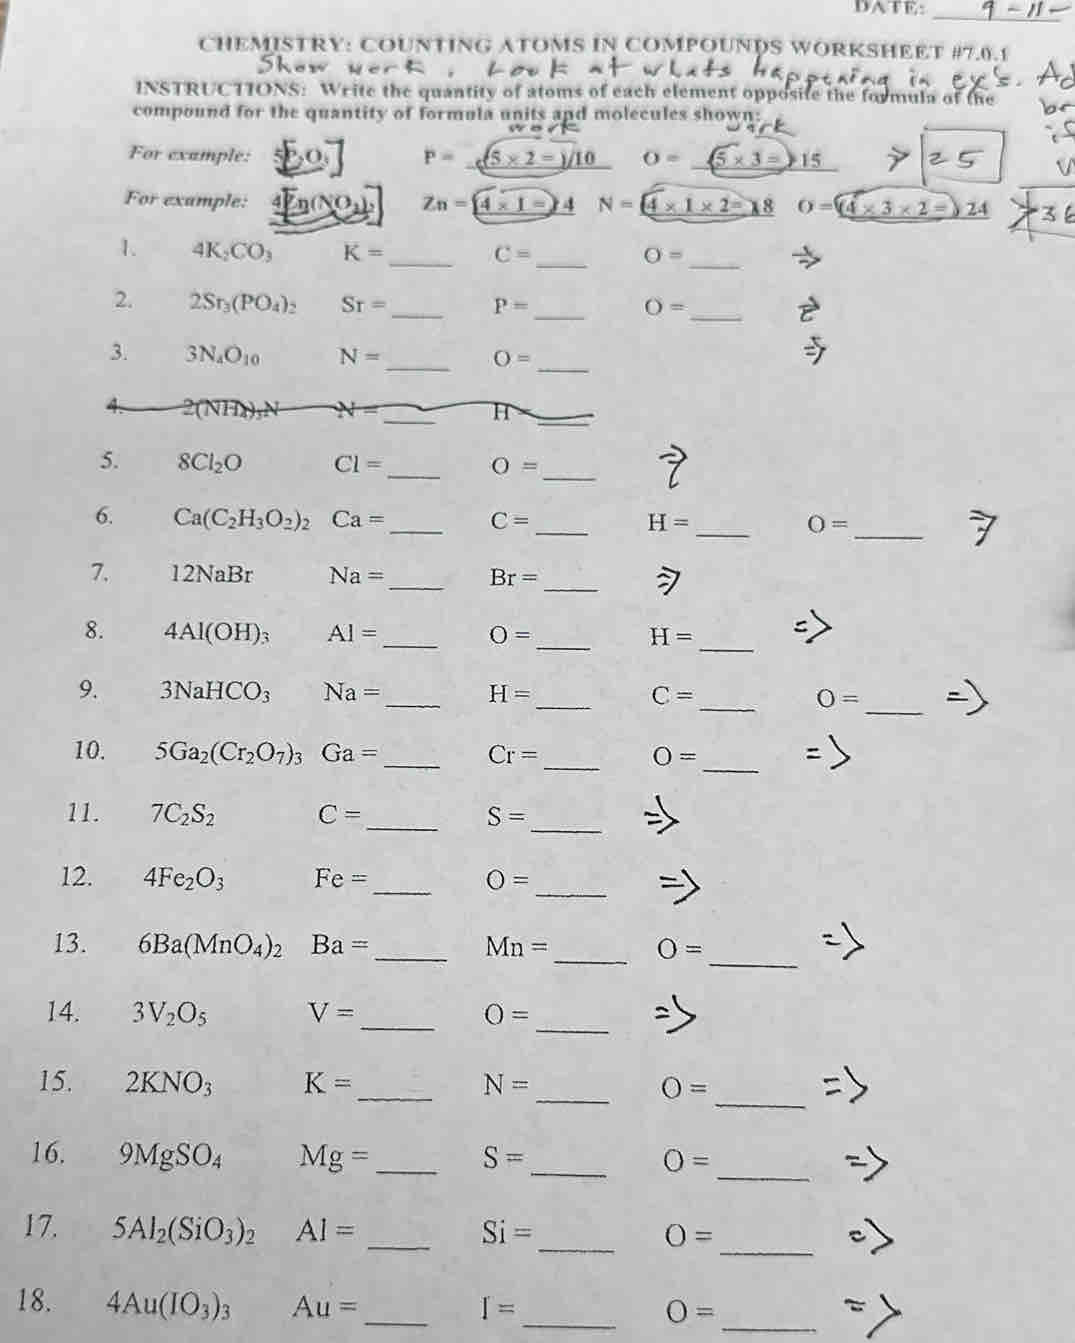 DATE: 9-11-
CHEMISTRY: COUNTING ATOMS IN COMPOUNDS WORKSHEET #7.0.1
Show work, Look at whats happening in ex's. Ad
INSTRUCTIONS: Write the quantity of atoms of each element opposite the formula of the
compound for the quantity of formula units and molecules shown:
work work
For example: 5P₂O₃ P = (5 × 2 = )10 O = (5 × 3 = )15 > 25
For example: 4Zn(NO₃)₂ Zn = (4 × 1 = )4 N = (4 × 1 × 2= )8 O = (4 × 3 × 2 = )24 36
1. 4K₂CO₃ K = ____ C = ____ O = ____ =>
2. 2Sr₃(PO₄)₂ Sr = ____ P = ____ O = ____ =>
3. 3N₄O₁₀ N = ____ O = ____ =>
4. 2(NH₄)₃N N = ____ H = ____
5. 8Cl₂O Cl = ____ O = ____ =>
6. Ca(C₂H₃O₂)₂ Ca = ____ C = ____ H = ____ O = ____ =>
7. 12NaBr Na = ____ Br = ____ =>
8. 4Al(OH)₃ Al = ____ O = ____ H = ____ =>
9. 3NaHCO₃ Na = ____ H = ____ C = ____ O = ____ =>
10. 5Ga₂(Cr₂O₇)₃ Ga = ____ Cr = ____ O = ____ =>
11. 7C₂S₂ C = ____ S = ____ =>
12. 4Fe₂O₃ Fe = ____ O = ____ =>
13. 6Ba(MnO₄)₂ Ba = ____ Mn = ____ O = ____ =>
14. 3V₂O₅ V = ____ O = ____ =>
15. 2KNO₃ K = ____ N = ____ O = ____ =>
16. 9MgSO₄ Mg = ____ S = ____ O = ____ =>
17. 5Al₂(SiO₃)₂ Al = ____ Si = ____ O = ____ =>
18. 4Au(IO₃)₃ Au = ____ I = ____ O = ____ =>